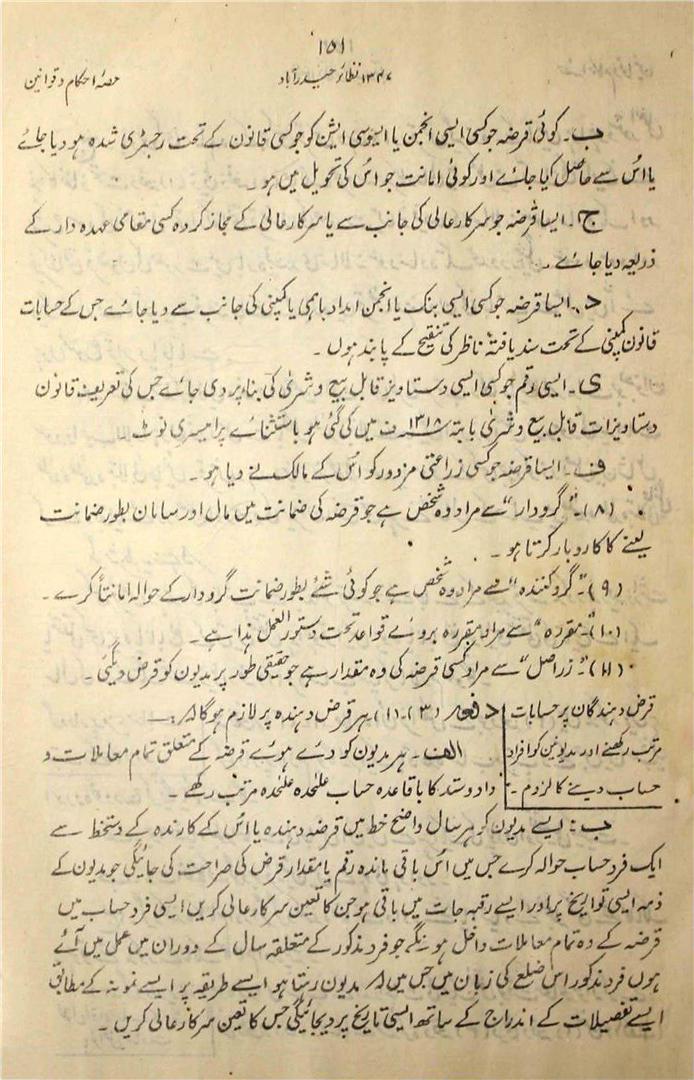 ۱۵۱
۱۳۴۷ نظائر حیدرآباد
حصۂ احکام و قوانین
ب۔ کوئی قرضہ جو کسی ایسی انجمن یا ایسوسی ایشن کو جو کسی قانون کے تحت رجسٹری شدہ ہو دیا جائے
یا اس سے حاصل کیا جائے اور کوئی امانت جو اس کی تحویل میں ہو۔
ج۔ ایسا قرضہ جو سرکار عالی کی جانب سے یا سرکار عالی کے مجاز کردہ کسی مقامی عہدہ دار کے
ذریعہ دیا جائے۔
د۔ ایسا قرضہ جو کسی ایسی بنک یا انجمن امداد باہمی یا کمپنی کی جانب سے دیا جائے جس کے حسابات
قانون کمپنی کے تحت سند یافتہ ناظر کی تنقیح کے پابند ہوں۔
ی۔ ایسی رقم جو کسی ایسی دستاویز قابل بیع و شریٰ کی بناء پر دی جائے جس کی تعریف قانون
دستاویزات قابل بیع و شریٰ بابتہ ۱۳۱۸ف میں کی گئی ہو باستثنائے پرامیسری نوٹ۔
ف۔ ایسا قرضہ جو کسی زراعتی مزدور کو اس کے مالک نے دیا ہو۔
(۸)۔ "گرودار" سے مراد وہ شخص ہے جو قرضہ کی ضمانت میں مال اور سامان بطور ضمانت
لینے کا کاروبار کرتا ہو۔
(۹)۔ "گرو کنندہ" سے مراد وہ شخص ہے جو کوئی شئے بطور ضمانت گرودار کے حوالہ امانتاً کرے۔
(۱۰)۔ "مقررہ" سے مراد مقررہ بروئے قواعد تحت دستور العمل ہذا ہے۔
(۱۱)۔ "زر اصل" سے مراد کسی قرضہ کی وہ مقدار ہے جو حقیقی طور پر مدیون کو قرض دیگئی۔
قرض دہندگان پر حسابات
مرتب رکھنے اور مدیونین کو افراد
حساب دینے کا لزوم۔
دفعہ (۳)۔ (۱) ہر قرض دہندہ پر لازم ہوگا کہ :۔
الف۔ ہر مدیون کو دئے ہوئے قرضہ کے متعلق تمام معاملات و
داد و ستد کا باقاعدہ حساب علٰحدہ علٰحدہ مرتب رکھے۔
ب: ایسے مدیون کو ہر سال واضح خط میں قرضہ دہندہ یا اس کے کارندہ کے دستخط سے
ایک فرد حساب حوالہ کرے جس میں اس باقی ماندہ رقم یا مقدار قرض کی صراحت کی جائیگی جو مدیون کے
ذمہ ایسی تواریخ پر اور ایسے رقبہ جات میں باقی ہو جن کا تعین سرکار عالی کریں ایسی فرد حساب میں
قرضہ کے وہ تمام معاملات داخل ہونگے جو فرد مذکور کے متعلقہ سال کے دوران میں عمل میں آئے
ہوں فرد مذکور اس ضلع کی زبان میں جس میں کہ مدیون رہتا ہو ایسے طریقہ پر ایسے نمونہ کے مطابق
ایسے تفصیلات کے اندراج کے ساتھ ایسی تاریخ پر دیجائیگی جس کا تعین سرکار عالی کریں۔